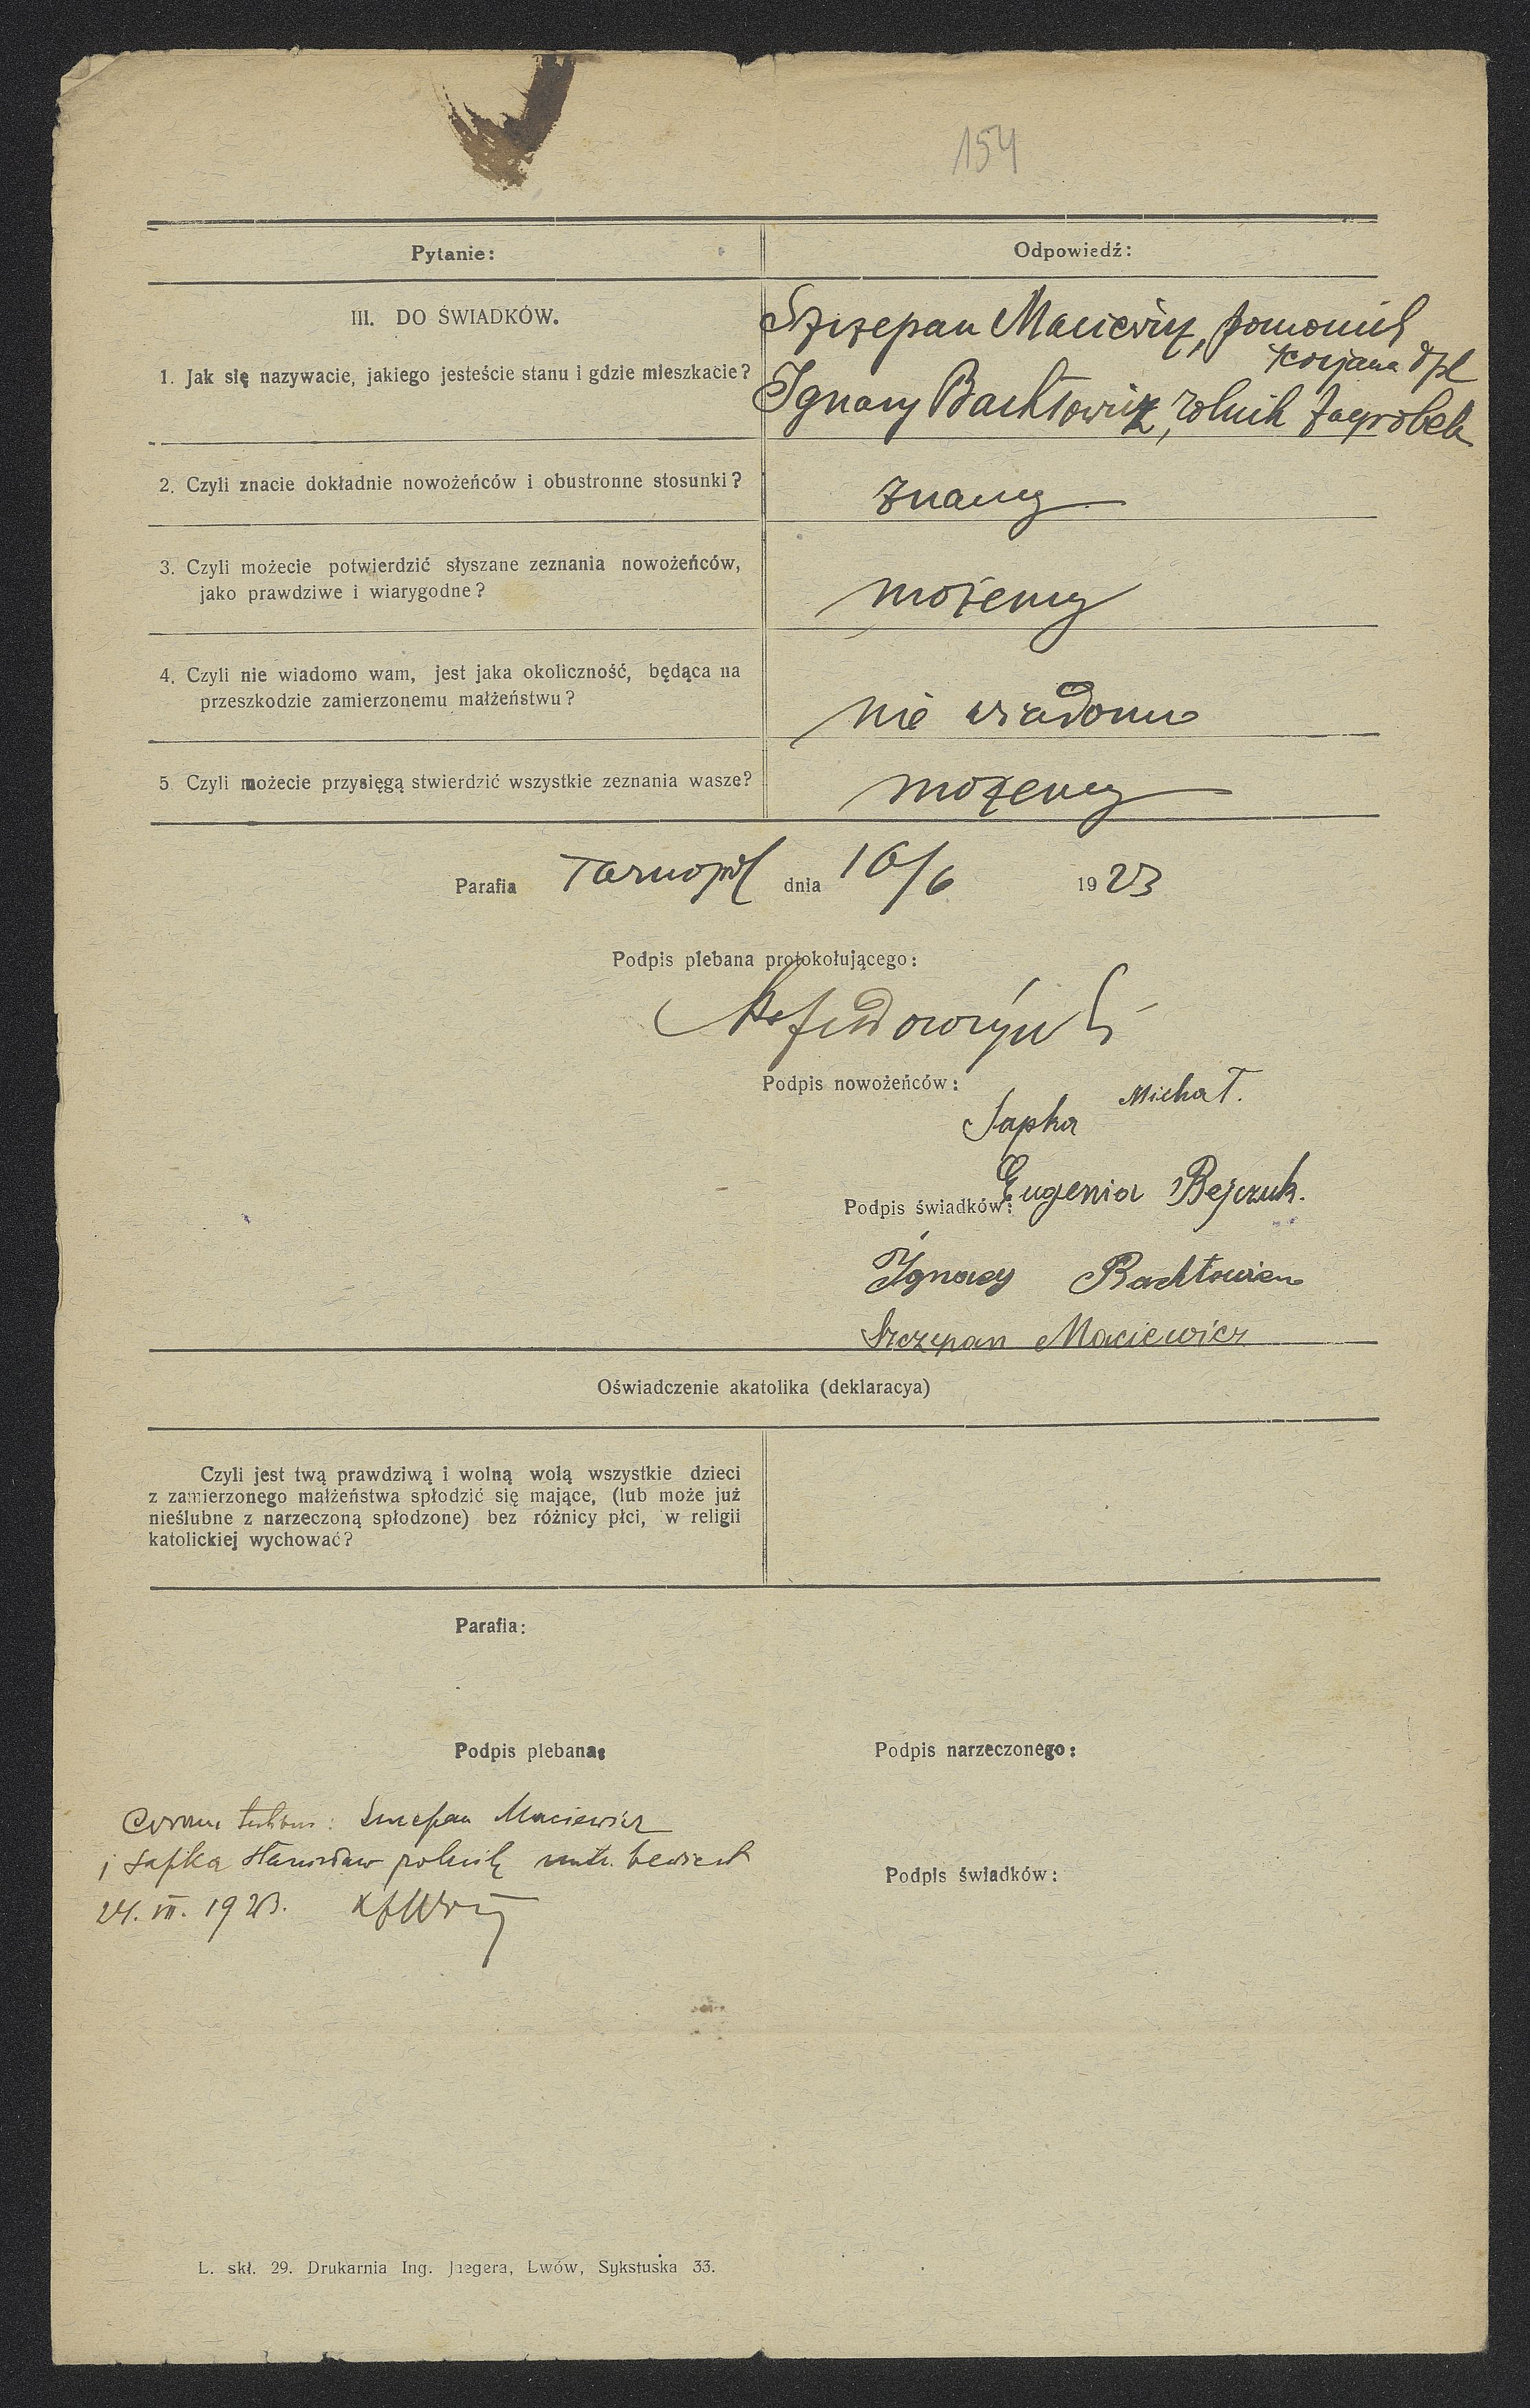 154
Pytanie:
Odpowiedź:
III. DO ŚWIADKÓW.
1. Jak się nazywacie, jakiego jesteście stanu i gdzie mieszkacie?
Szczepan Maciewicz, pomocnik
Ignacy Bachłowicz, rolnik Zagrobela
2. Czyli znacie dokładnie nowożeńców i obustronne stosunki?
znamy
3. Czyli możecie potwierdzić słyszane zeznania nowożeńców,
jako prawdziwe i wiarygodne?
możemy
4. Czyli nie wiadomo wam, jest jaka okoliczność, będąca na
przeszkodzie zamierzonemu małżeństwu?
nie wiadomo
5 Czyli możecie przysięgą stwierdzić wszystkie zeznania wasze?
możemy
Parafia Tarnopol dnia 16/6 1923
Podpis plebana protokołującego:
Podpis nowożeńców:
Sapka Michał.
Eugenia Bejczuk.
Podpis świadków:
Ignacy Bachłowicz
Szczepan Maciewicz
Oświadczenie akatolika (deklaracya)
Czyli jest twą prawdziwą i wolną wolą wszystkie dzieci
z zamierzonego małżeństwa spłodzić się mające, (lub może już
nieślubne z narzeczoną spłodzone) bez różnicy płci, w religii
katolickiej wychować?
Parafia:
Podpis plebana:
Podpis narzeczonego:
Coram testibus: Szczepan Maciewicz
i Sapka Stanisław
Podpis świadków:
24. VII. 1923.
L. skł. 29. Drukarnia Ing. Jaegera, Lwów, Sykstuska 33.